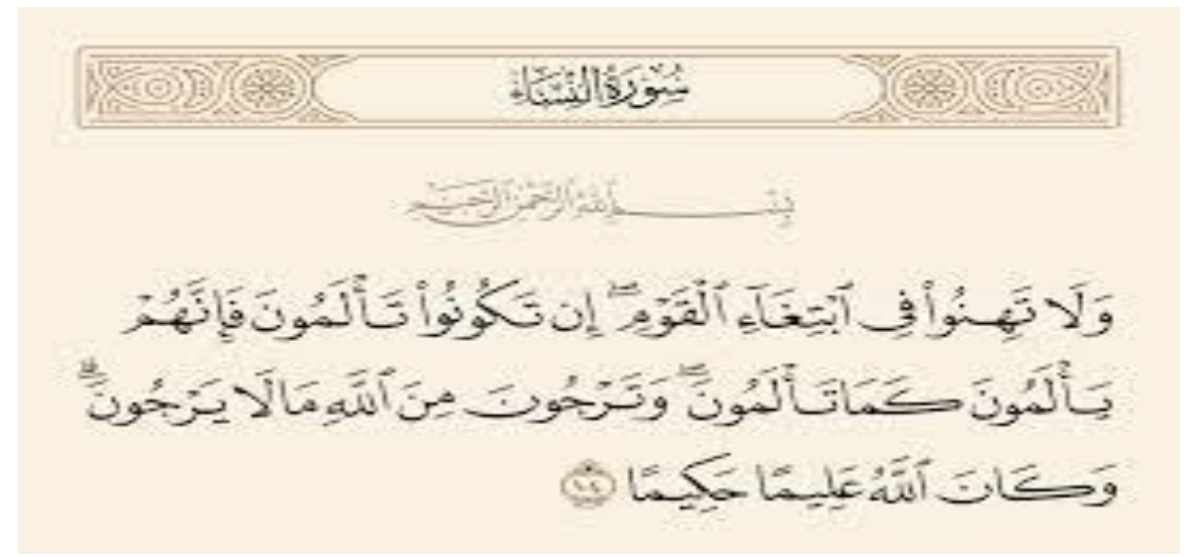 سُورَةُ النِّسَاءِ
بِسْمِ ٱللَّهِ ٱلرَّحْمَٰنِ ٱلرَّحِيمِ
وَلَا تَهِنُوا۟ فِى ٱبْتِغَآءِ ٱلْقَوْمِ ۖ إِن تَكُونُوا۟ تَأْلَمُونَ فَإِنَّهُمْ
يَأْلَمُونَ كَمَا تَأْلَمُونَ ۖ وَتَرْجُونَ مِنَ ٱللَّهِ مَا لَا يَرْجُونَ ۗ
وَكَانَ ٱللَّهُ عَلِيمًا حَكِيمًا ١٠٤